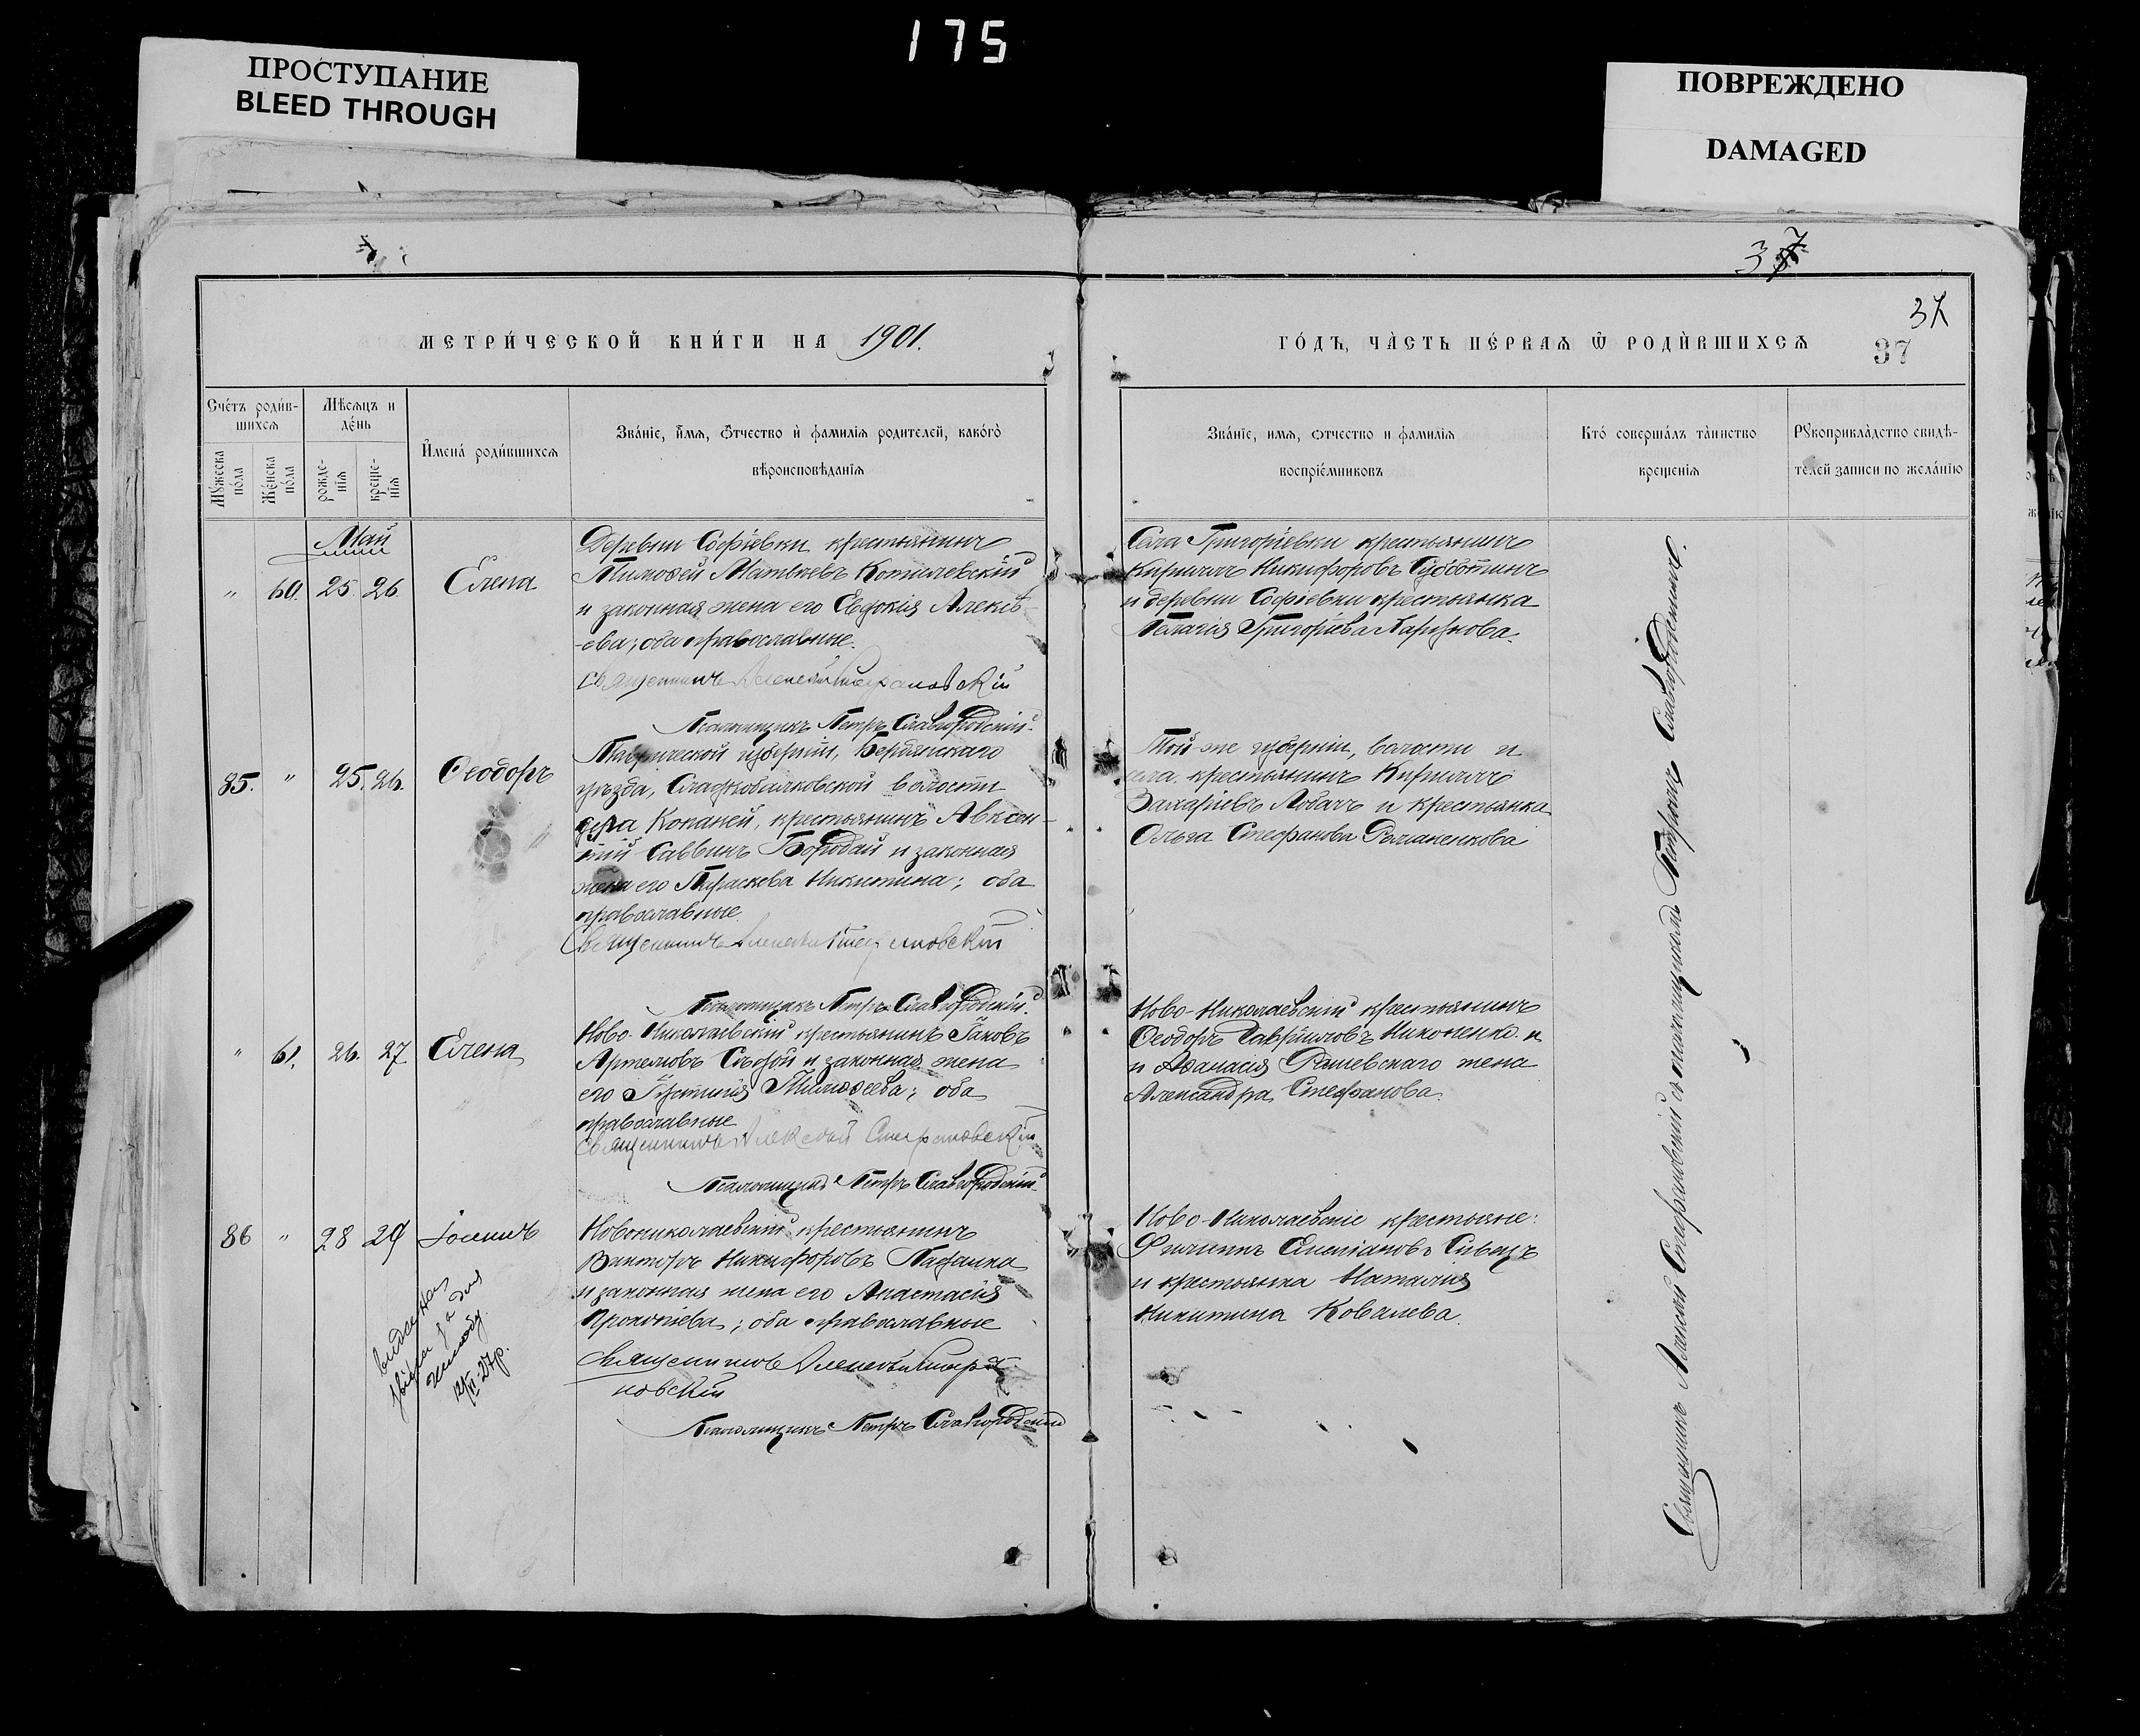 175
ПРОСТУПАНИЕ
BLEED THROUGH
ПОВРЕЖДЕНО
DAMAGED
37
37
37
МЕТРИ́ЧЕСКОЙ КНИ́ГИ НА 1901.
ГО́ДЪ, ЧА́СТЬ ПЕ́РВАѦ Ѿ РОДИ́ВШИХСѦ
Сче́тъ роди́в-
шихсѧ
Мѣ́сѧцъ и
де́нь
Мꙋ́жеска
по́ла
Же́нска
по́ла
рожде-
нїѧ
креще-
нїѧ
И҆мена̀ роди́вшихсѧ
Зва́нїе, и҆́мѧ, ѻ҆́тчество и҆ фами́лїѧ роди́телей, како́гѡ
вѣроисповѣ́данїѧ
Зва́нїе, имѧ, ѻтчество и фами́лїѧ
воспрїе́мниковъ
Кто̀ соверша́лъ та́инство
креще́нїѧ
Рꙋкоприкла́дство свидѣ́-
телей записи по жела́нїю
Май
" 60. 25. 26. Елена
Деревни Софіевки крестьянинъ
Тимоѳей Матвѣевъ Котилевскій
и законная жена его Евдокія Алексѣ-
-ева; оба православные.
Священникъ Алексѣй Стефановскій
Псаломщикъ Петръ Славгородскій
Села Григоріевки крестьянинъ
Кириллъ Никифоровъ Субботинъ
и деревни Софіевки крестьянка
Пелагія Григорьева
85. " 25. 26. Ѳеодоръ
Таврической губерніи, Бердянскаго
уѣзда, Сладкобалковской волости
села Копаней, крестьянинъ Авксен-
тій Саввинъ Бородай и законная
жена его Параскева Никитина; оба
православные.
Священникъ Алексѣй Стефановскій
Псаломщикъ Петръ Славгородскій
Той-же губерніи, волости и
села крестьянинъ Кириллъ
Захаріевъ Лобачъ и крестьянка
Ольга Стефанова Романенкова
" 61. 26. 27 Елена
Ново-Николаевскій крестьянинъ Іаковъ
Артемовъ Сѣдой и законная жена
его Іустинія Тимоѳеева; оба
православные
Священникъ Алексѣй Стефановскій
Псаломщикъ Петръ Славгородскій
Ново-Николаевскій крестьянинъ
Ѳеодоръ Гавріиловъ Никоненко и
и Аѳанасія Рашевскаго жена
Александра Стефанова.
86 " 28 29 Іоаннъ
Новониколаевскій крестьянинъ
Викторъ Никифоровъ
и законная жена его Анастасія
Прокопіева; оба православные
Священникъ Алексѣй Стефа-
новскій
Псаломщикъ Петръ Славгородскій
Ново-Николаевскіе крестьяне:
Филиппъ Емеліановъ Сивацъ
и крестьянка Наталія
Никитина Ковалева.
27р.
Священникъ Алексѣй Стефановскій съ псаломщикомъ Петромъ Славгородскимъ.